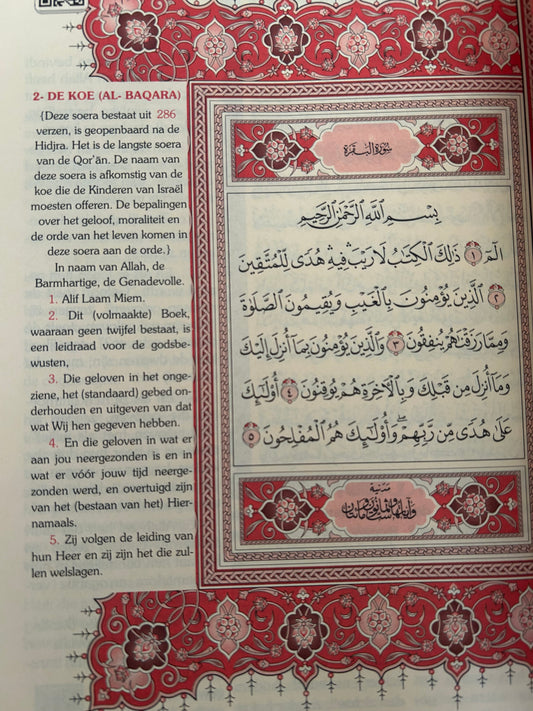 2- DE KOE (AL- BAQARA)
{Deze soera bestaat uit 286
verzen, is geopenbaard na de
Hidjra. Het is de langste soera
van de Qor'ān. De naam van
deze soera is afkomstig van de
koe die de Kinderen van Israël
moesten offeren. De bepalingen
over het geloof, moraliteit en
de orde van het leven komen in
deze soera aan de orde.}
In naam van Allah, de
Barmhartige, de Genadevolle.
1. Alif Laam Miem.
2. Dit (volmaakte) Boek,
waaraan geen twijfel bestaat, is
een leidraad voor de godsbe-
wusten,
3. Die geloven in het onge-
ziene, het (standaard) gebed on-
derhouden en uitgeven van dat
wat Wij hen gegeven hebben.
4. En die geloven in wat er
aan jou neergezonden is en in
wat er vóór jouw tijd neerge-
zonden werd, en overtuigd zijn
van het (bestaan van het) Hier-
namaals.
5. Zij volgen de leiding van
hun Heer en zij zijn het die zul-
len welslagen.
سُورَةُ الْبَقَرَةِ
بِسْمِ اللَّهِ الرَّحْمَٰنِ الرَّحِيمِ
الٓمٓ ﴿١﴾ ذَٰلِكَ الْكِتَابُ لَا رَيْبَ ۛ فِيهِ ۛ هُدًى لِلْمُتَّقِينَ
﴿٢﴾ الَّذِينَ يُؤْمِنُونَ بِالْغَيْبِ وَيُقِيمُونَ الصَّلَاةَ
وَمِمَّا رَزَقْنَاهُمْ يُنْفِقُونَ ﴿٣﴾ وَالَّذِينَ يُؤْمِنُونَ بِمَا أُنْزِلَ إِلَيْكَ
وَمَا أُنْزِلَ مِنْ قَبْلِكَ وَبِالْآخِرَةِ هُمْ يُوقِنُونَ ﴿٤﴾ أُولَٰئِكَ
عَلَىٰ هُدًى مِنْ رَبِّهِمْ ۖ وَأُولَٰئِكَ هُمُ الْمُفْلِحُونَ ﴿٥﴾
مدنية